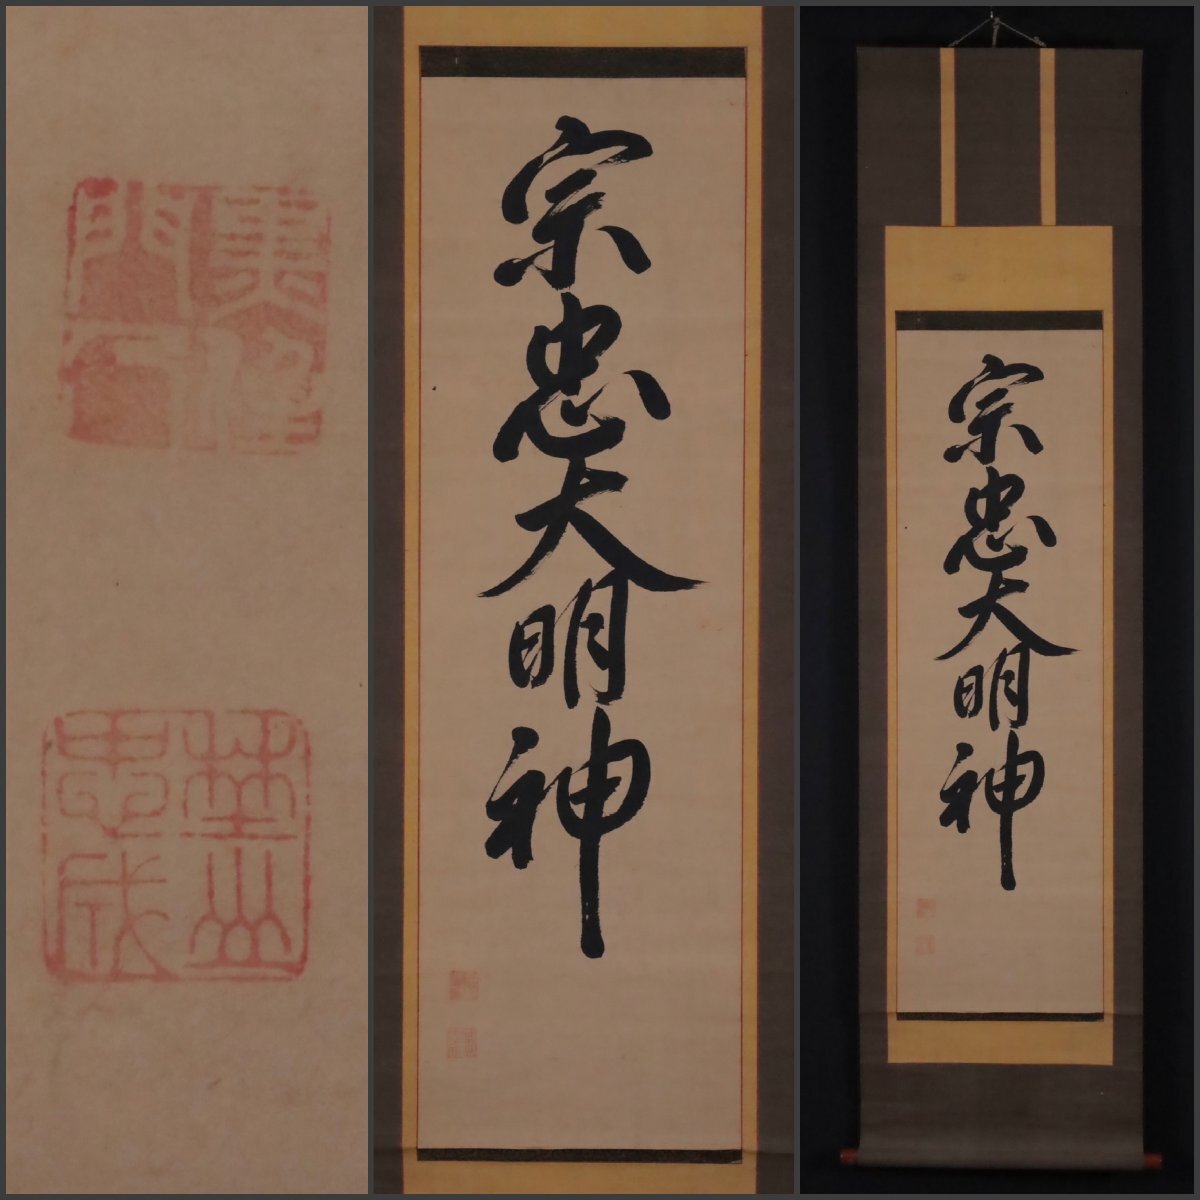 宗忠大明神
宗忠大明神